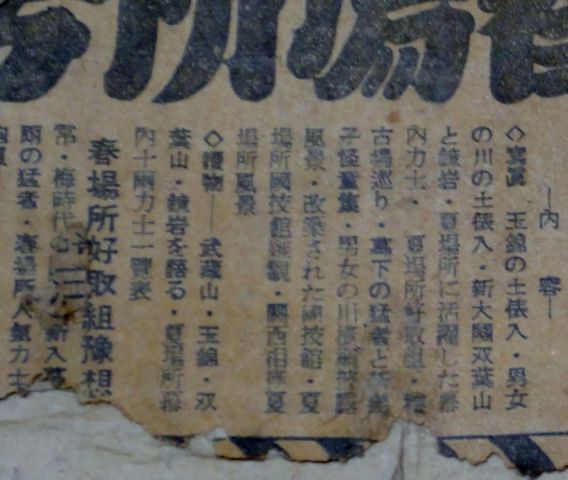 春場所号
—内容—
◇寫眞 玉錦の土俵入・男女
の川の土俵入・新大關双葉山
と鏡岩・夏場所に活躍した幕
內力士・夏場所好取組・
古場巡り・幕下の猛者と
子怪童集・男女の川横綱披露
風景・改築された國技館・夏
場所國技館雜觀・關西相撲夏
場所風景
◇讀物—武藏山・玉錦・双
葉山・鏡岩を語る・夏場所幕
內十兩力士一覽表
春場所好取組豫想
常・梅時代の 新入幕
の猛者・春場所人氣力士